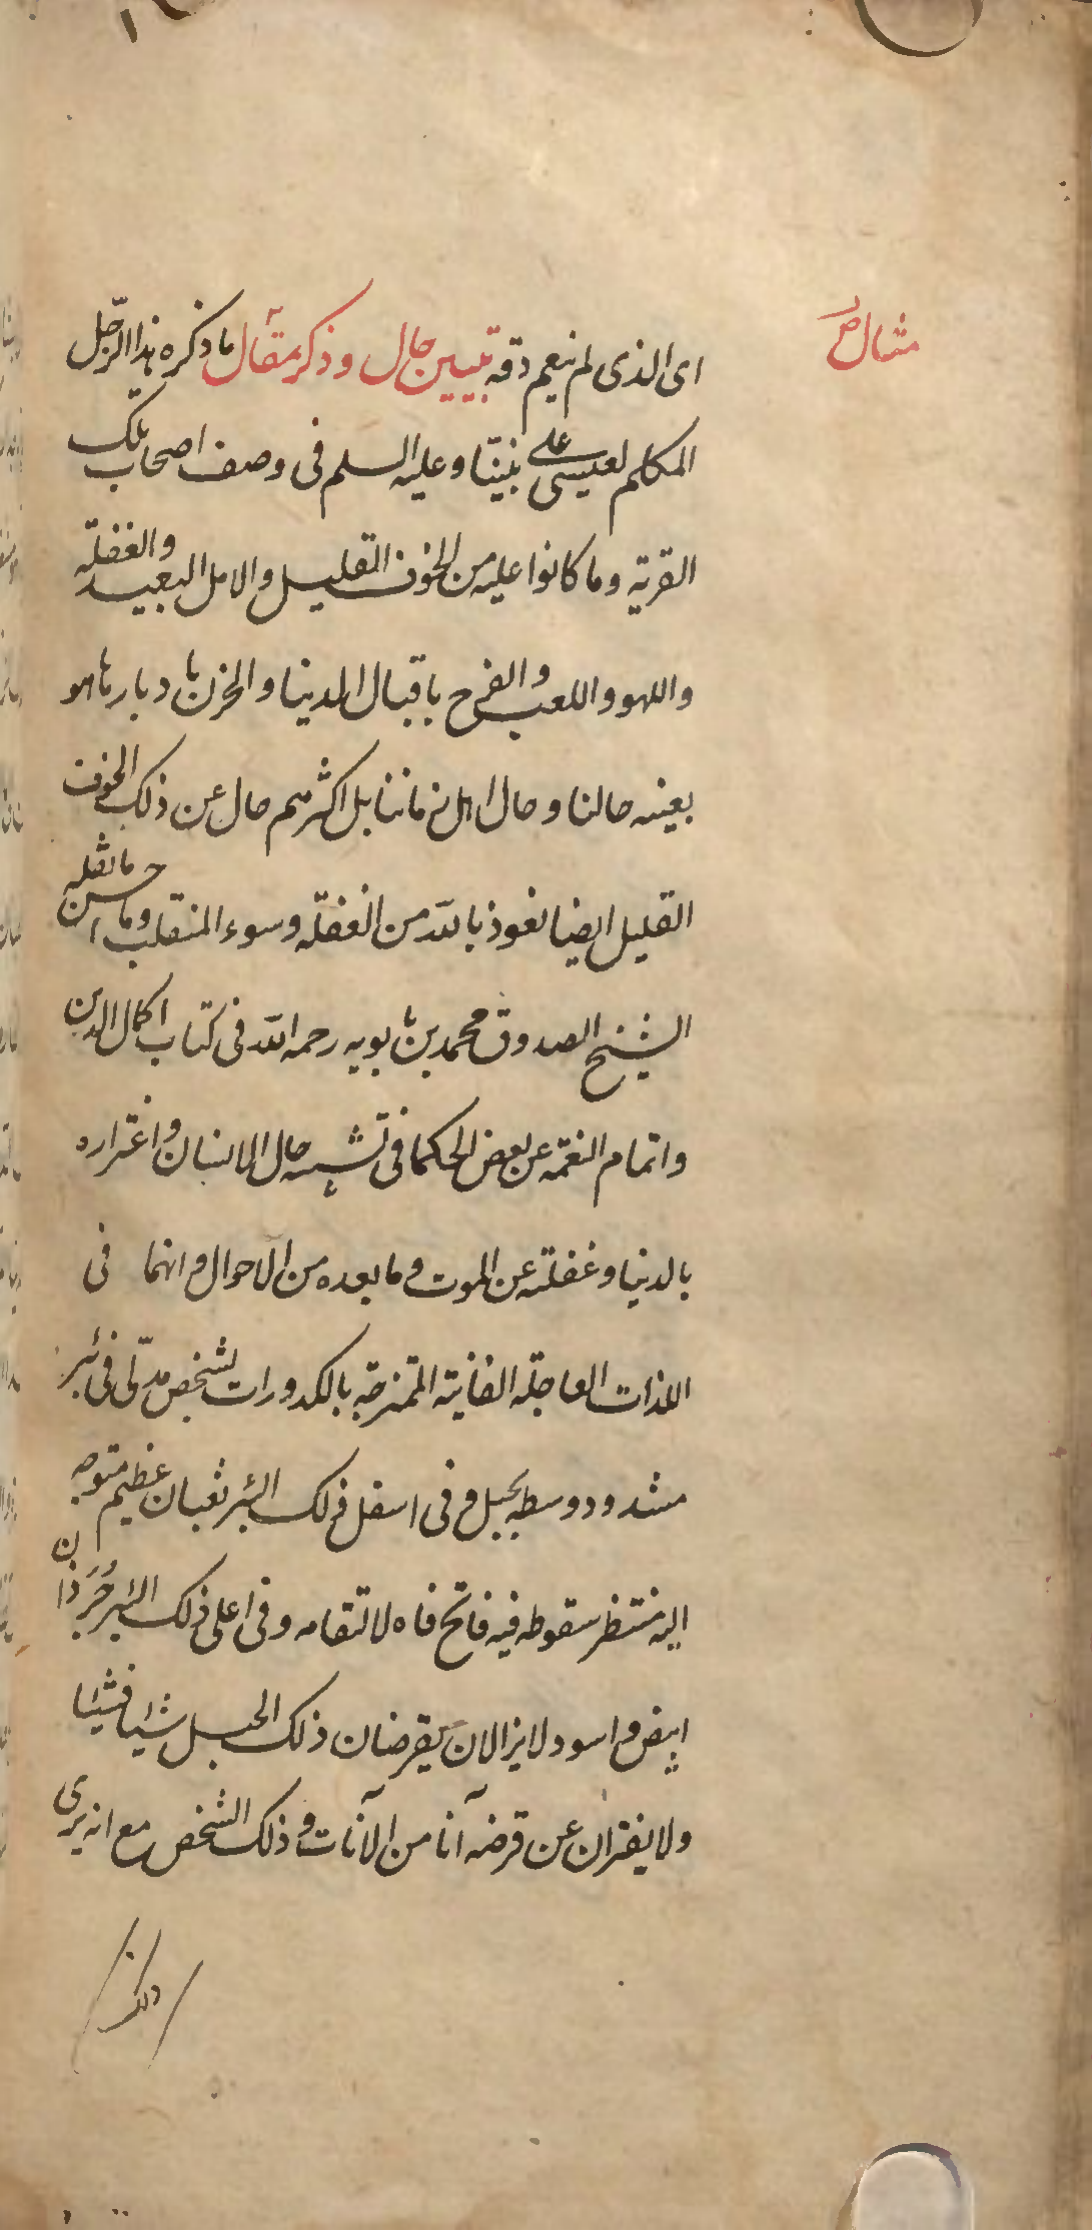 مثال
اى الذى لم ينعم دقه تبيين حال و ذكر مقال ما ذكره هذا الرجل
المكلم لعيسى على نبينا و عليه السلم فى وصف اصحاب تلك
القرية و ما كانوا عليه من الخوف القليل و الامل البعيد و الغفلة
و اللهو و اللعب و الفرح باقبال الدنيا و الحزن بادبارها هو
بعينه حالنا و حال اهل زماننا بل اكثرهم خال عن ذلك الخوف
القليل ايضا نعوذ بالله من الغفلة و سوء المنقلب و ما احسن ما نقله
الشيخ الصدوق محمد بن بابويه رحمه الله فى كتاب اكمال الدين
و اتمام النعمة عن بعض الحكما فى تشبيه حال الانسان و اغتراره
بالدنيا و غفلته عن الموت و ما بعده من الاحوال و انهما فى
اللذات العاجلة الفانية الممتزجة بالكدورات لشخص مدلى فى بئر
مشدود وسطه بحبل و فى اسفل ذلك البئر ثعبان عظيم متوجه
اليه منتظر سقوطه فيه فاتح فاه لالتقامه و فى اعلى ذلك البئر جرذان
ابيض و اسود لا يزالان يقرضان ذلك الحبل شيئا فشيئا
و لا يفتران عن قرضه آنا من الآنات و ذلك الشخص مع انه يرى
ذلك